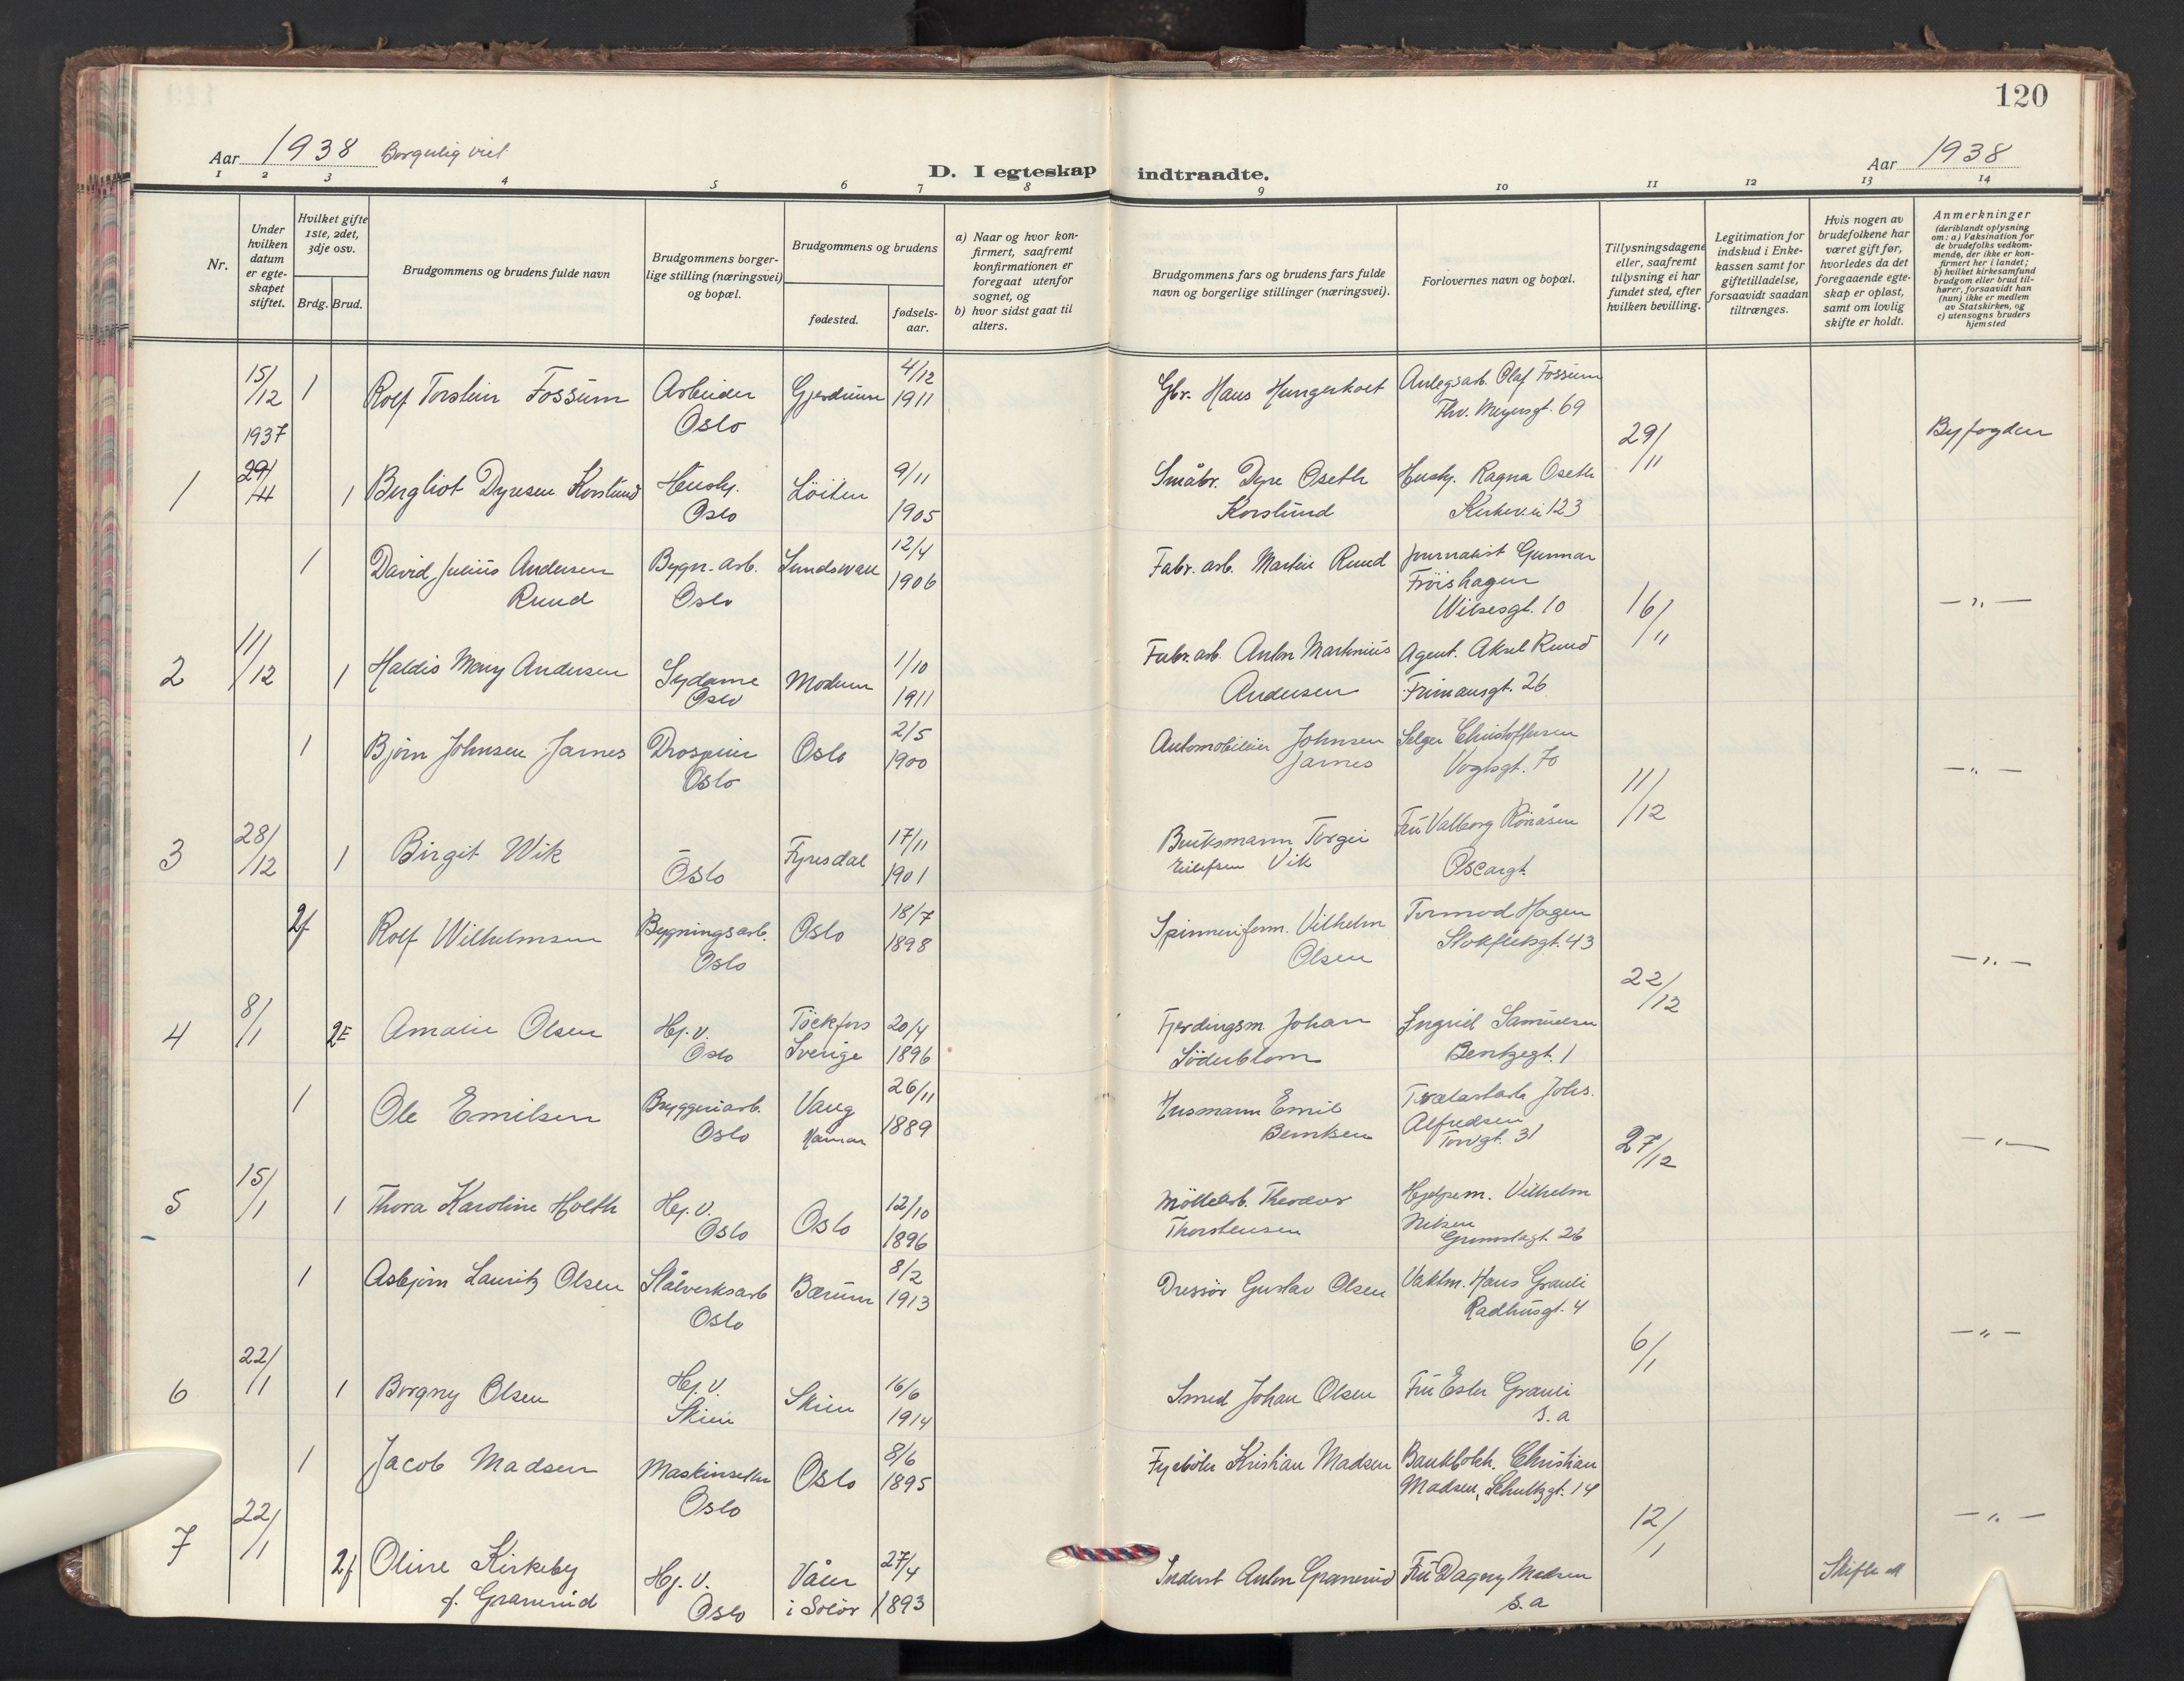 120
Aar 1938 Borgerlig viet
D. I egteskap indtraadte.
Aar 1938
1 2 3 4 5 6 7 8 9 10 11 12 13 14
Nr.
Under hvilken datum er egteskapet stiftet.
Hvilket gifte 1ste, 2det, 3dje osv.
Brdg. Brud.
Brudgommens og brudens fulde navn
Brudgommens borgerlige stilling (næringsvei) og bopæl.
Brudgommens og brudens
fødested.
fødselsaar.
a) Naar og hvor konfirmert, saafremt konfirmationen er foregaat utenfor sognet, og
b) hvor sidst gaat til alters.
Brudgommens fars og brudens fars fulde navn og borgerlige stillinger (næringsvei).
Forlovernes navn og bopæl.
Tillysningsdagene eller, saafremt tillysning ei har fundet sted, efter hvilken bevilling.
Legitimation for indskud i Enkekassen samt for giftetilladelse, forsaavidt saadan tiltrænges.
Hvis nogen av brudefolkene har været gift før, hvorledes da det foregaaende egteskap er opløst, samt om lovlig skifte er holdt.
Anmerkninger (deriblandt oplysning om: a) Vaksination for de brudefolks vedkommende, der ikke er konfirmert her i landet; b) hvilket kirkesamfund brudgom eller brud tilhører, forsaavidt han (hun) ikke er medlem av Statskirken, og c) utensogns bruders hjemsted
15/12 1937 1 Rolf Torstein Fossum Arbeider Oslo Gjerdrum 4/12 1911 Gbr. Hans Hungerholt Anlegsarb. Olaf Fossum Thv. Meyersgt. 69 29/11 Byfogden
1 29/11 1 Bergliot Dyresen Korslund Hush. Oslo Löiten 9/11 1905 Småbr. Dyre Oseth Korslund Hush. Ragna Oseth Kirkevei 123
1 David Julius Andersen Ruud Bygn. arb. Oslo Sundsvall 12/4 1906 Fabr. arb. Martin Ruud Journalist Gunnar Fröishagen Wilsesgt. 10 16/11 — " —
2 11/12 1 Haldis Mary Andersen Sydame Oslo Modum 1/10 1911 Fabr. arb. Anton Martinius Andersen Agent. Aksel Ruud Frimansgt. 26
1 Björn Johnsen Jarnes Drosjeeier Oslo Oslo 2/5 1900 Automobileier Johnsen Jarnes Selger Christoffersen Vogtsgt. 70 11/12 — " —
3 28/12 1 Birgit Wik Oslo Fyresdal 17/11 1901 Bruksmann Torgei Eilefsen Vik Fru Valborg Rönåsen Oscarsgt.
2f Rolf Wilhelmsen Bygningsarb. Oslo Oslo 18/7 1898 Spinneriform. Vilhelm Olsen Tormod Hagen Stokfletsgt. 43 22/12 — " —
4 8/1 2E Amalie Olsen Hj. v. Oslo Töckfors Sverige 20/4 1896 Fjerdingsm. Johan Söderblom Ingrid Samuelsen Bentzegt. 1
1 Ole Emilsen Bryggeriarb. Oslo Vang Hamar 26/11 1889 Husmann Emil Berntsen Johs. Alfredsen Torvgt. 31 27/12 — " —
5 15/1 1 Thora Karoline Holth Hj. v. Oslo Oslo 12/10 1896 Möllearb. Theodor Thorstensen Hjelpem. Vilhelm Nilsen 26
1 Asbjörn Lauritz Olsen Stålverksarb Oslo Bærum 8/2 1913 Dressör Gustav Olsen Vaktm. Hans Grauli Radhusgt. 4 6/1 — " —
6 22/1 1 Borgny Olsen Hj. v. Skien Skien 16/6 1914 Smed Johan Olsen Fru Ester Grauli s. a
1 Jacob Madsen Maskinsetter Oslo Oslo 8/6 1895 Fyrböter Kristian Madsen Bankbokh. Christian Madsen, Schultzgt. 14 12/1 — " —
7 22/1 2f Oline Kirkeby f. Granerud Hj. v. Oslo Våler i Solör 27/4 1893 Inderst Anton Granerud Fru Dagny Madsen s. a Skifte